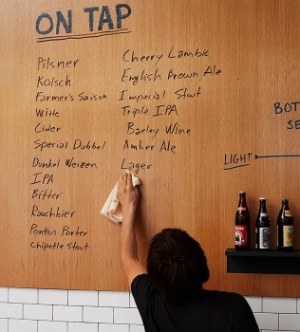 ON TAP
Pilsner
Kolsch
Farmer's Saison
Witte
Cider
Special Dubbel
Dunkel Weizen
IPA
Bitter
Rauchbier
Ponton Porter
Chipotle Stout
Cherry Lambic
English Brown Ale
Imperial Stout
Triple IPA
Barley Wine
Amber Ale
Lager
BOT
SE
LIGHT